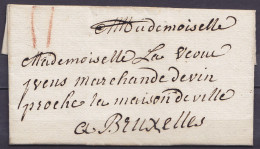 Mademoiselle
Mademoiselle La Veuve
yvens marchande de vin
proche la maison de ville
a Bruxelles